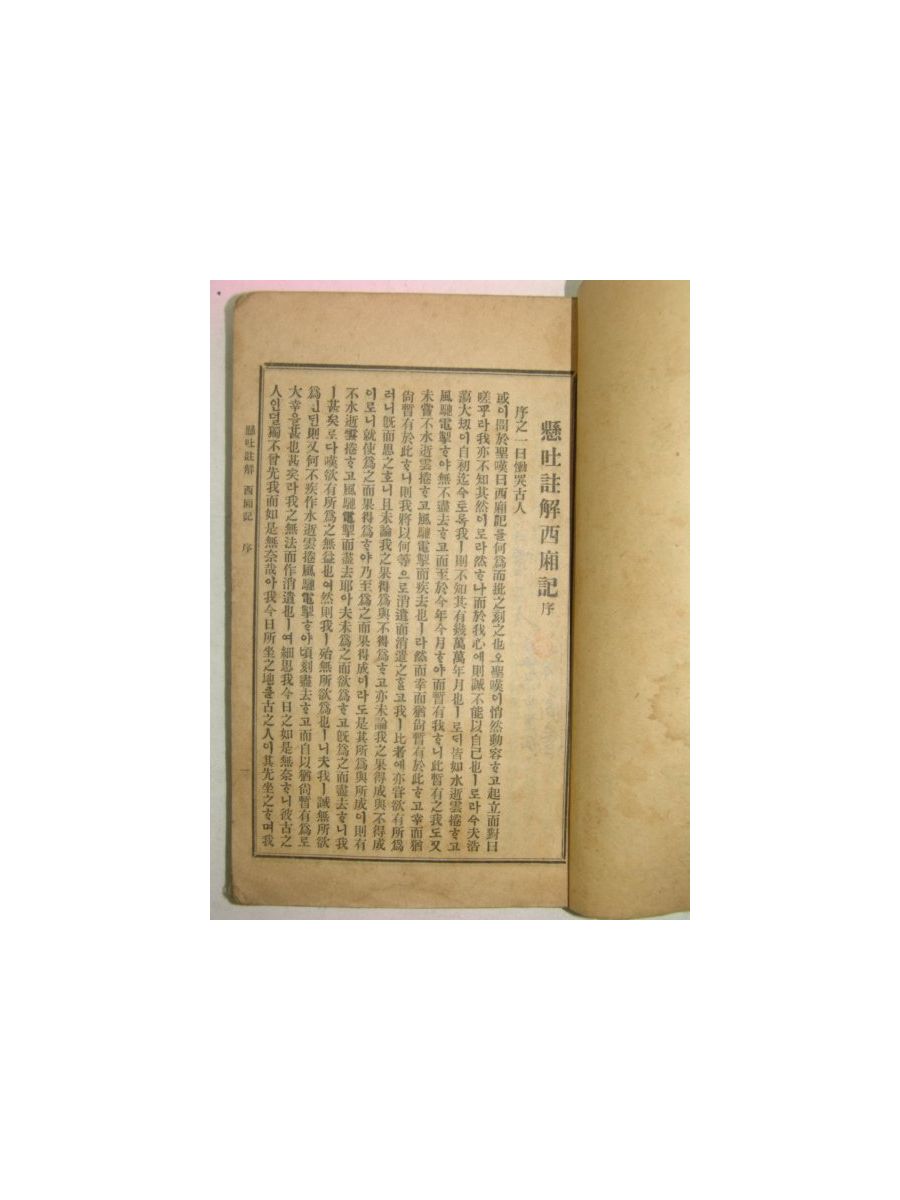 懸吐註解西廂記序
序之一曰慟哭古人
或이問於聖嘆曰西廂記를何爲而批之刻之也오聖嘆이悄然動容ᄒᆞ고起立而對曰
嗟乎라我亦不知其然이로라然ᄒᆞ나而於我心에則誠不能以自已也ㅣ로라今夫浩
蕩大刼이自初迄今토록我ㅣ則不知其有幾萬萬年月也ㅣ로ᄃᆡ皆如水逝雲捲ᄒᆞ고
風馳電掣ᄒᆞ야無不盡去ᄒᆞ고而至於今年今月ᄒᆞ야而暫有我ᄒᆞ니此暫有之我도又
未嘗不水逝雲捲ᄒᆞ고風馳電掣而疾去也ㅣ라然而幸而猶尙暫有於此ᄒᆞ고幸而猶
尙暫有於此ᄒᆞ니則我將以何等으로消遣而消遣之ᄒᆞᆯ고我ㅣ比者에亦甞欲有所爲
러니旣而思之ᄒᆞ니且未論我之果得爲與不得爲ᄒᆞ고亦未論我之果得成與不得成
이로니就使爲之而果得爲ᄒᆞ야乃至爲之而果得成이라도是其所爲與所成이則有
不水逝雲捲ᄒᆞ고風馳電掣而盡去耶아夫未爲之而欲爲ᄒᆞ고旣爲之而盡去ᄒᆞ니我
ㅣ甚矣로다嘆欲有所爲之無益也여然則我ㅣ殆無所欲爲也ㅣ니夫我ㅣ誠無所欲
爲ᅟᅵᆫ딘則又何不疾作水逝雲捲風馳電掣ᄒᆞ야頃刻盡去ᄒᆞ고而自以猶尙暫有爲로
大幸을甚也甚矣라我之無法而作消遣也ㅣ여細思我今日之如是無奈ᄒᆞ니彼古之
人인덜獨不曾先我而如是無奈哉아我今日所坐之地를古之人이其先坐之ᄒᆞ며我
懸吐註解 西廂記 序